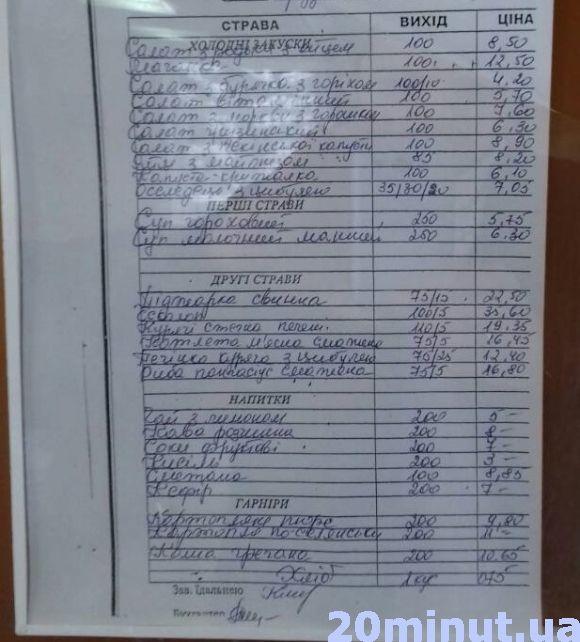 СТРАВА ВИХІД ЦІНА
ХОЛОДНІ ЗАКУСКИ
Салат з редьки з яйцем 100 8,50
100 12,50
Салат з буряка з горіхом 100/10 4,20
Салат вітамінний 100 5,70
Салат з моркви з горошком 100 7,60
Салат 100 6,30
Салат з пекінської капусти 100 8,90
Яйця з майонезом 85 8,20
Капуста 100 6,10
Оселедець з цибулею 35/30/20 7,05
ПЕРШІ СТРАВИ
Суп гороховий 250 5,75
Суп молочний 250 6,30
ДРУГІ СТРАВИ
Піджарка свинна 75/15 22,50
Ескалоп 100/5 35,60
Куряче стегно печене 110/5 19,35
Котлета м'ясна смажена 75/5 16,45
Печінка куряча з цибулею 75/25 12,40
Риба пангасіус смажена 75/5 16,80
НАПИТКИ
Чай з лимоном 200 5-
Кава розчинна 200 8-
Соки фруктові 200 7-
Кисіль 200 3-
Сметана 100 8,85
Кефір 200 7-
ГАРНІРИ
Картопляне пюре 200 9,80
Картопля по-селянськи 200 11-
Каша гречана 200 10,65
Хліб 1 кус 0,75
Зав. їдальнею
Бухгалтер
20minut.ua